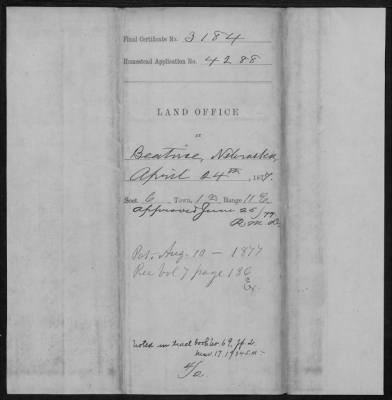 Final Certificate No. 3184
Homestead Application No. 4288
LAND OFFICE
AT
Beatrice, Nebraska,
April 24th, 187
Sect. 6 Town. 1 N Range 11 E
Approved June 25/77
Pat. Aug. 10 - 1877
Rec vol 7 page 136
Noted in tract book vol. 69.